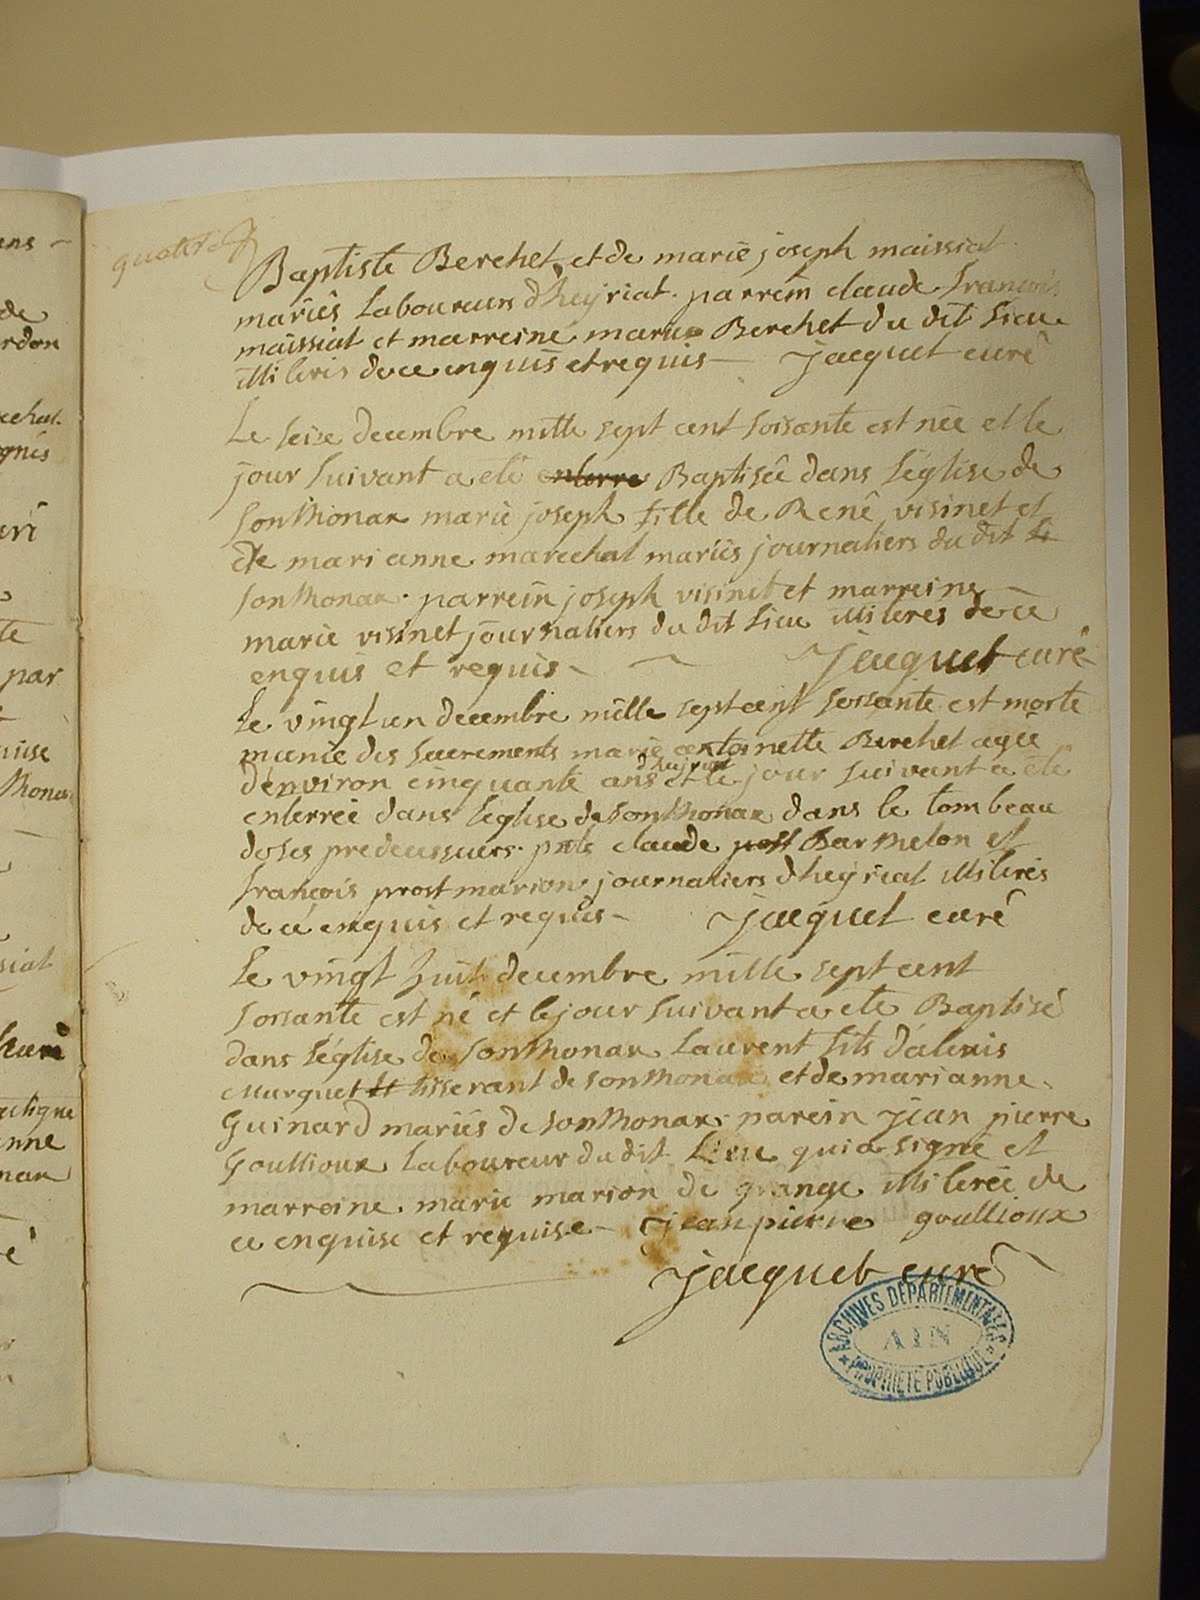 Baptiste Berchet et de marie joseph maissiat
mariés Laboureurs d'heyriat. parrein claude françois
maissiat et marreine marie Berchet du dit Lieu
illiterés de ce enquis et requis - jacquet curé
Le seize decembre mille sept cent soissante est née et le
jour suivant a eté enterre Baptisée dans l'église de
sonthonax marie joseph fille de René visinet et
de marianne marechal mariés journaliers du dit Li
sonthonax. parrein joseph visinet et marreine
marie visinet journaliers du dit Lieu illiteres de ce
enquis et requis - jacquet curé
Le vingt un decembre mille sept cent soissante est morte
munie des sacrements marie antoinette Berchet agée
d'heyriat
d'environ cinquante ans et le jour suivant a eté
enterrée dans l'eglise de sonthonax dans le tombeau
de ses predecesseurs. pnts claude Barthelon et
françois prost marion journaliers d'heyriat illiterés
de ce enquis et requis - jacquet curé
Le vingt huit decembre mille sept cent
soissante est né et le jour suivant a eté Baptisé
dans l'église de sonthonax Laurent fils d'alexis
Murguet et tisserant de sonthonax et de marianne
Guinard mariés de sonthonax. parein jean pierre
Goullioux Laboureur du dit Lieu qui a signé et
marreine marie marion de grange illiterée de
ce enquise et requise - jean pierre goullioux
jacquet curé
ARCHIVES DÉPARTEMENTALES
AIN
PROPRIÉTÉ PUBLIQUE